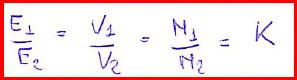 E1/E2 = V1/V2 = N1/N2 = K